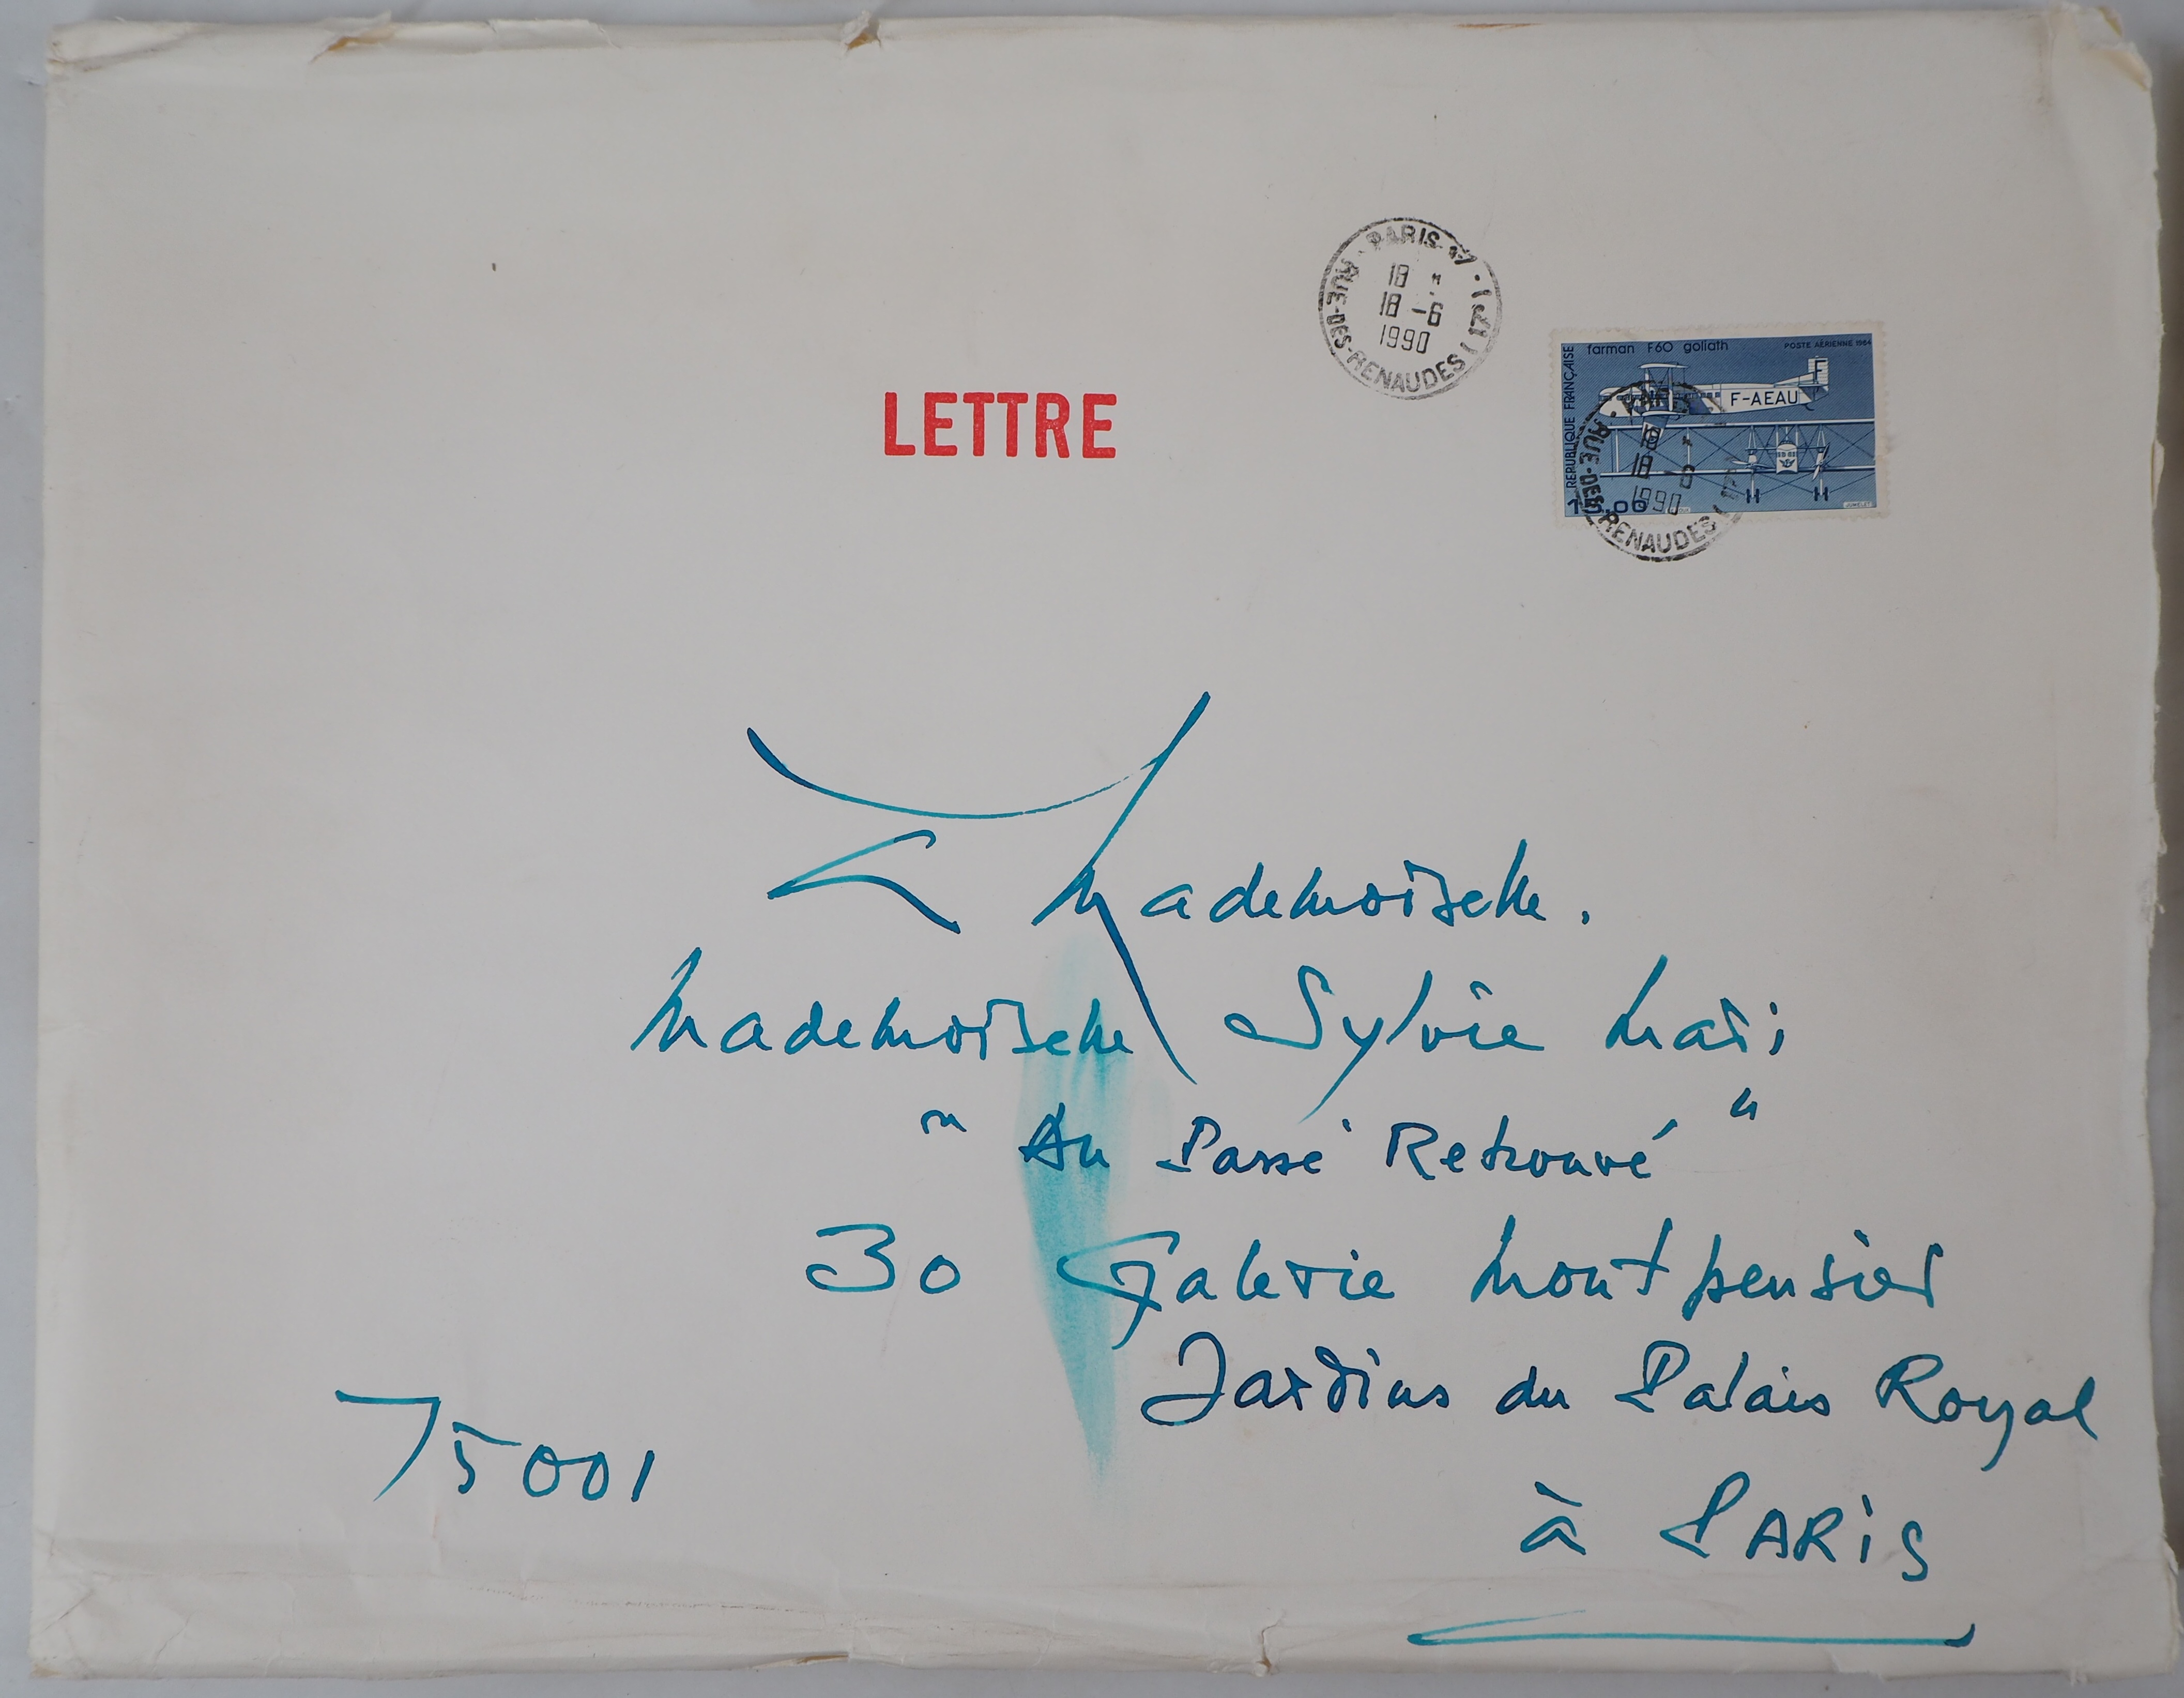 PARIS 17
18 H
18 -6
1990
RUE-DES-RENAUDES (17e)
farman F60 goliath
POSTE AÉRIENNE 1984
RÉPUBLIQUE FRANÇAISE
F-AEAU
18 -6
1990
RUE-DES-RENAUDES
LETTRE
Mademoiselle.
Mademoiselle Sylvie
"Au Passé Retrouvé"
30 Galerie Montpensier
Jardins du Palais Royal
75001
à PARIS